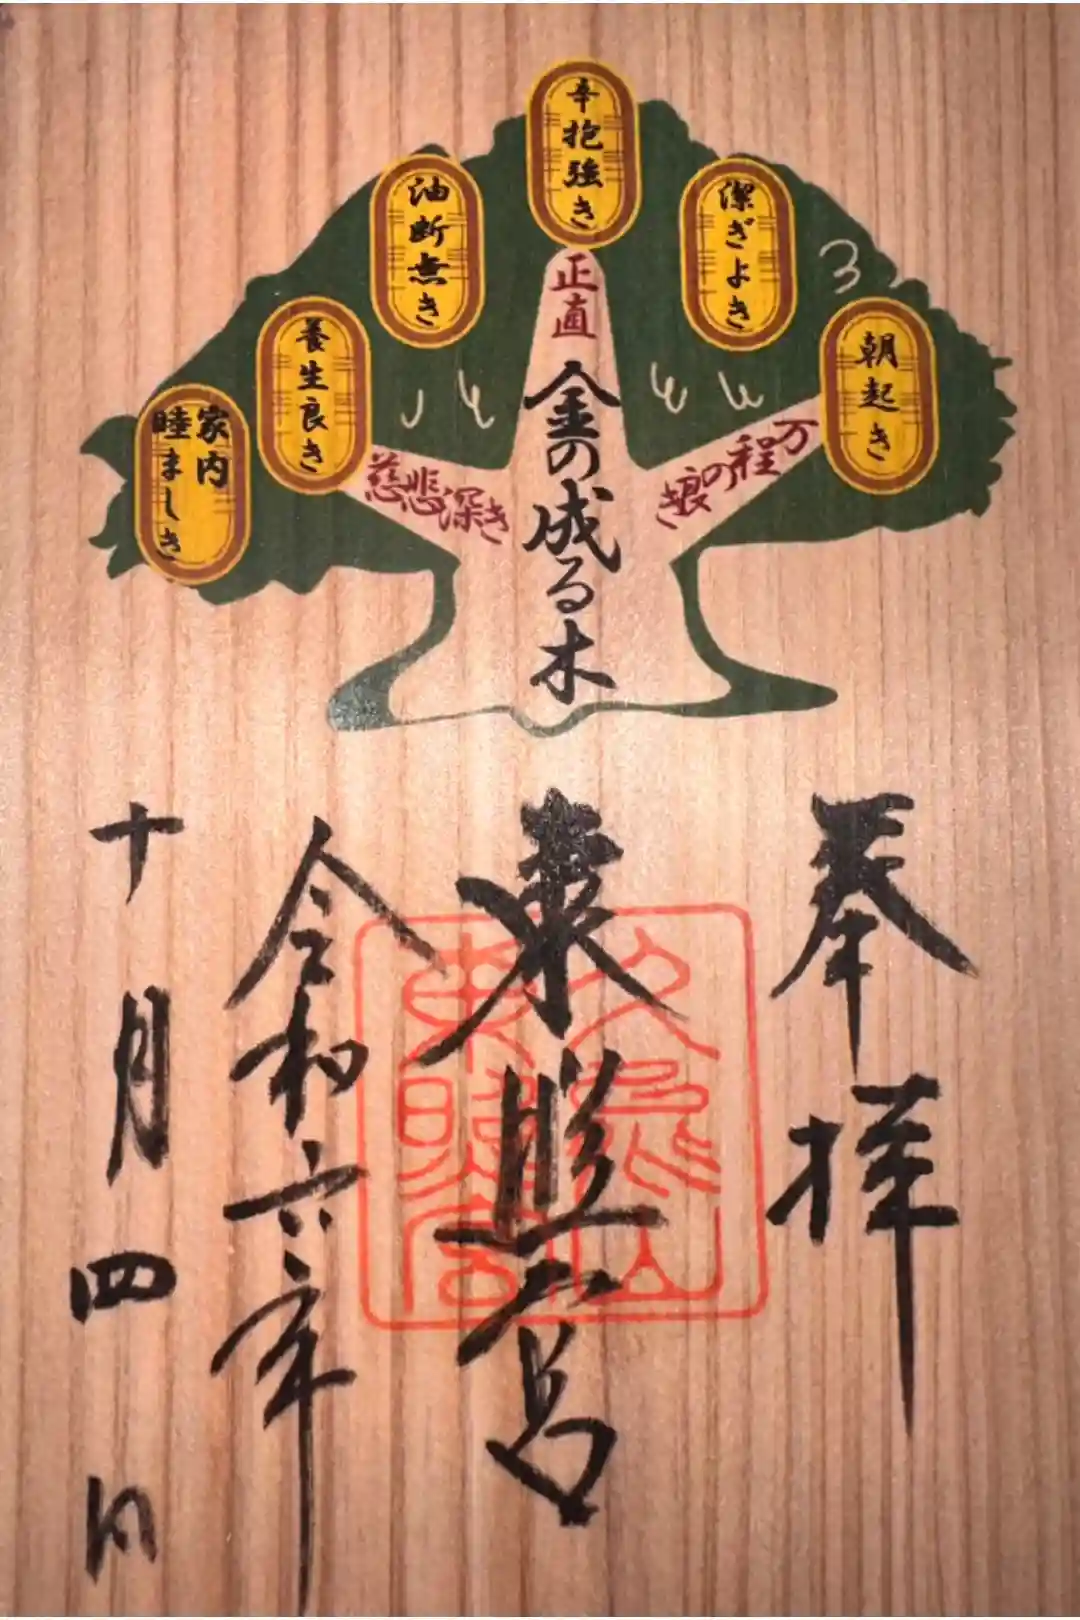 朝起き
潔ぎよき
辛抱強き
油断無き
養生良き
家内
睦ましき
万程の良き
正直
慈悲深き
金の成る木
奉拝
東照宮
久能山
東照宮
令和六年
十月四日